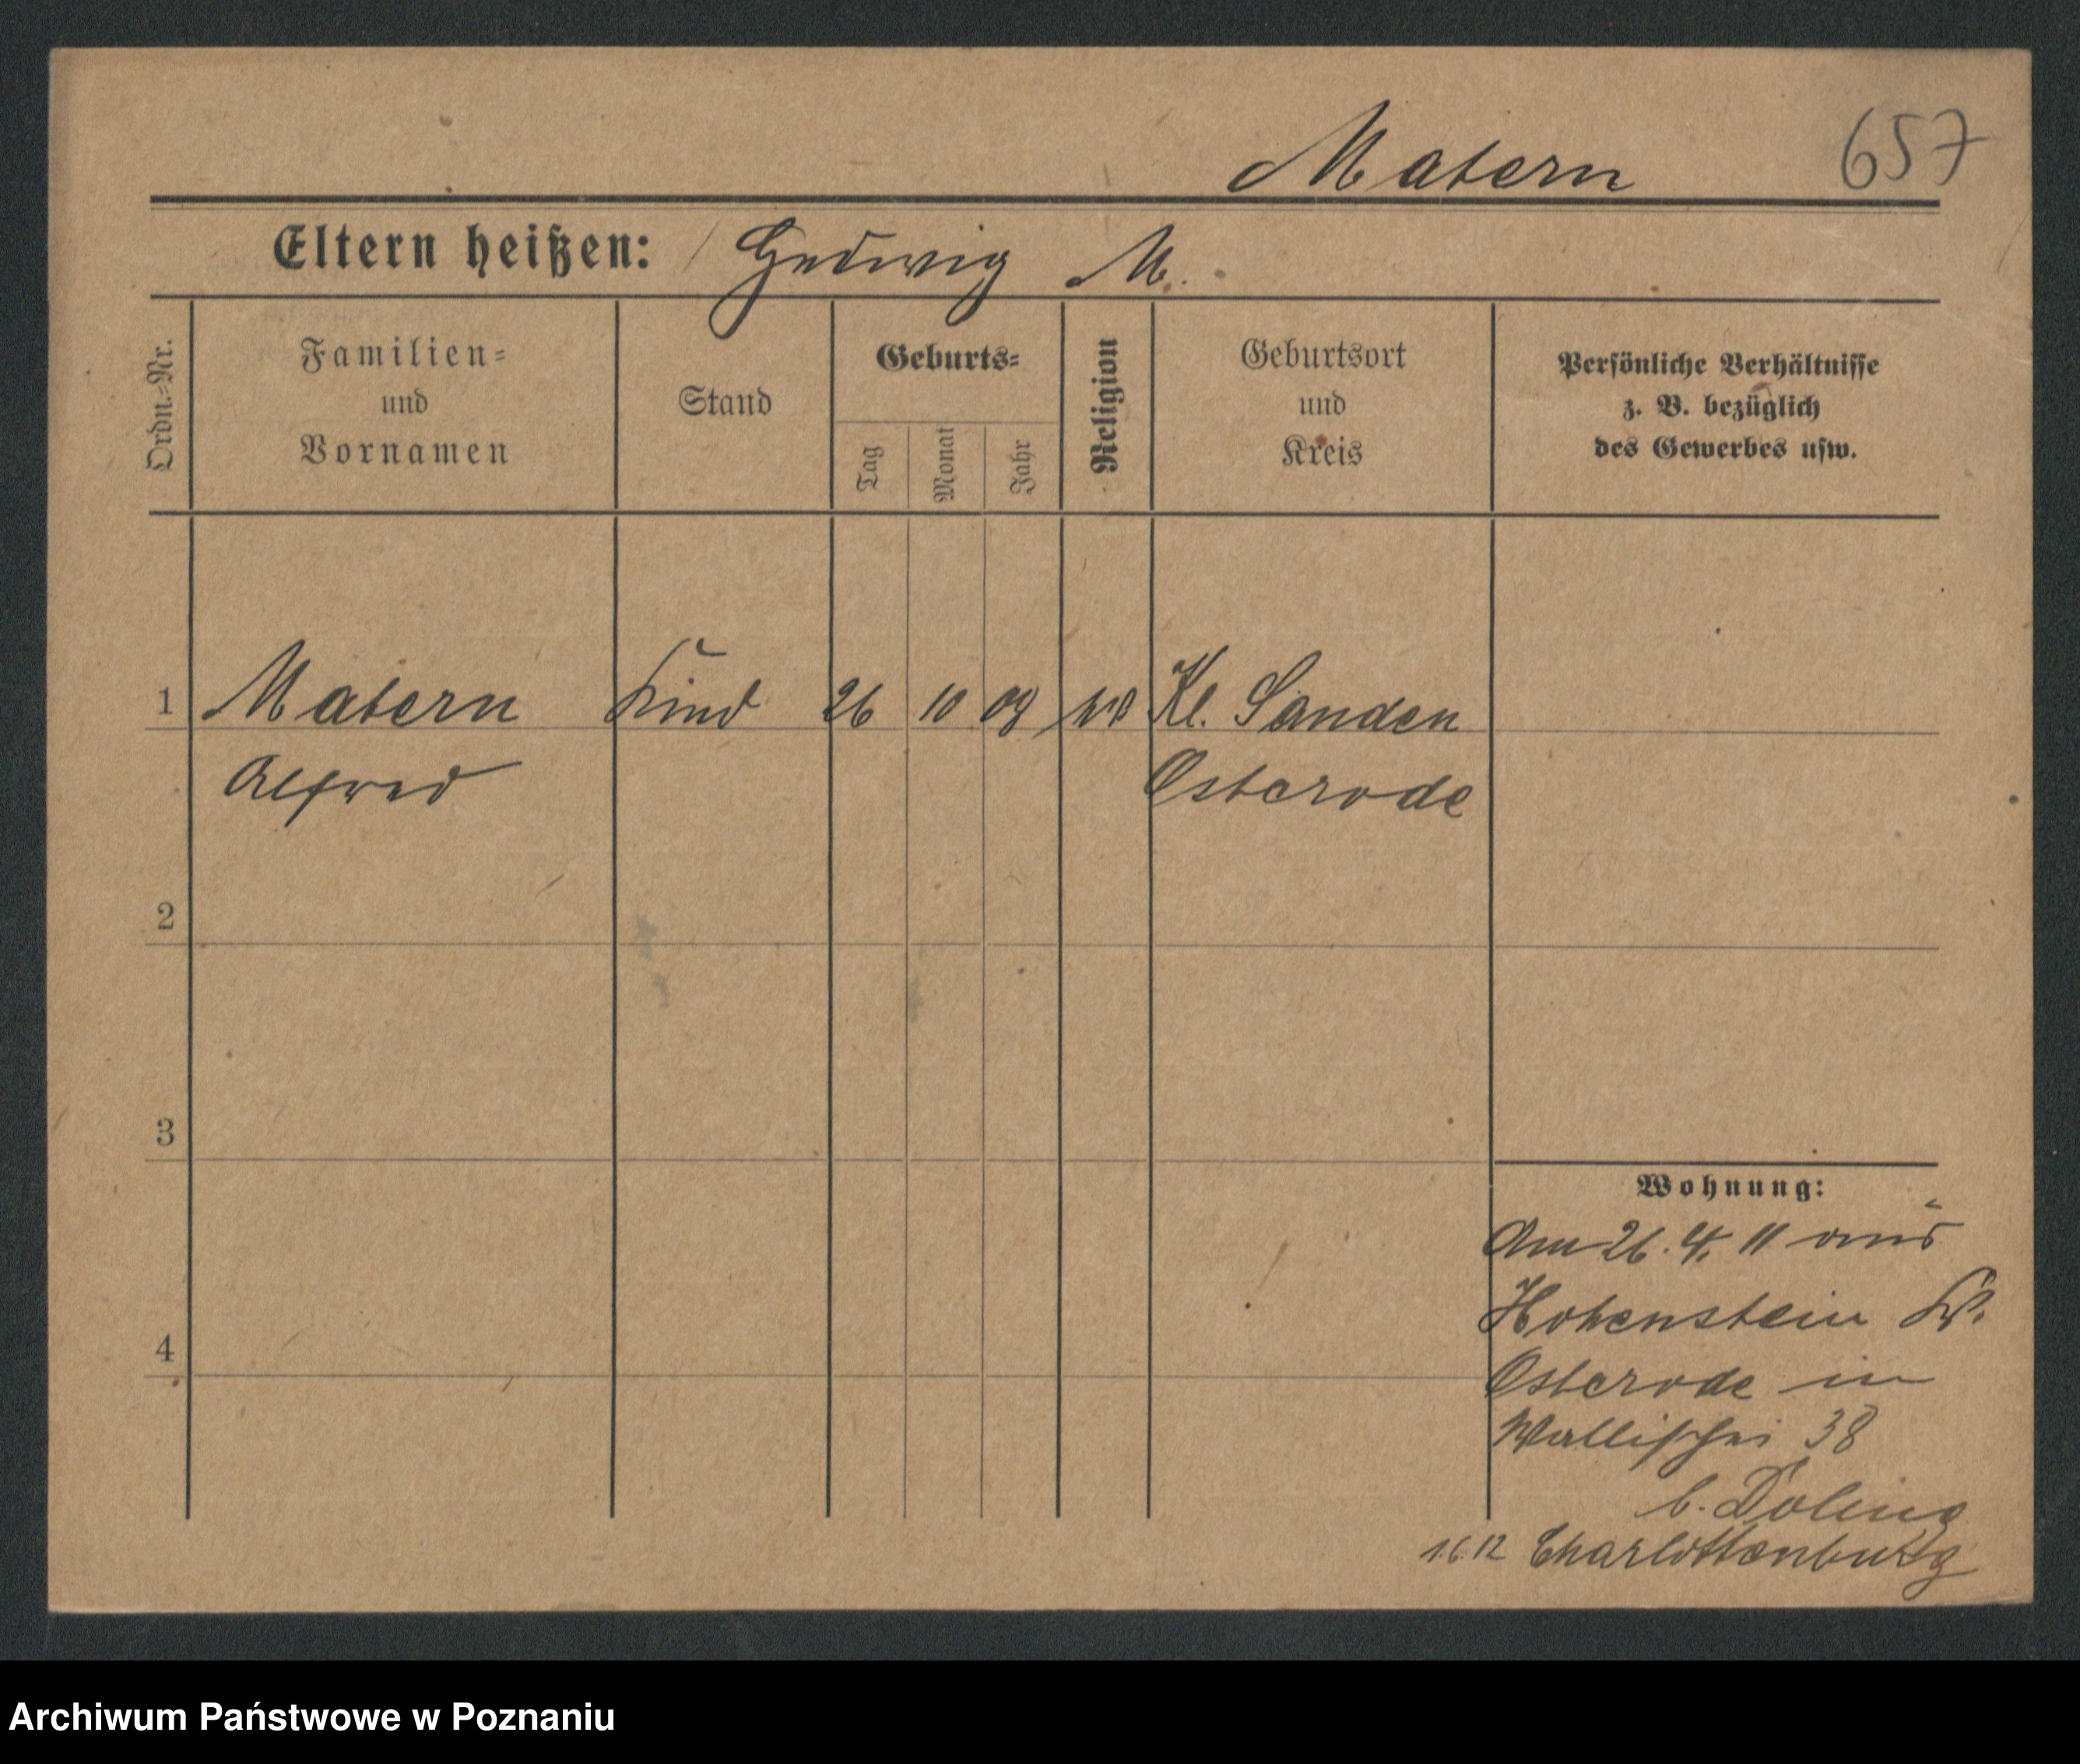 Matern 657
Eltern heißen: Hedwig M.
Ordn.=Nr.
Familien=
und
Vornamen
Stand
Geburts=
Tag
Monat
Jahr
Religion
Geburtsort
und
Kreis
Persönliche Verhältnisse
z. B. bezüglich
des Gewerbes usw.
1 Matern Kind 26 10 09 Kl. Sanden
Alfred Osterode
2
3
4
Wohnung:
Am 26. 4. 11 aus
Hohenstein Kr.
Osterode in
Wallischei 38
b. Doling
1.6.12 Charlottenburg
Archiwum Państwowe w Poznaniu